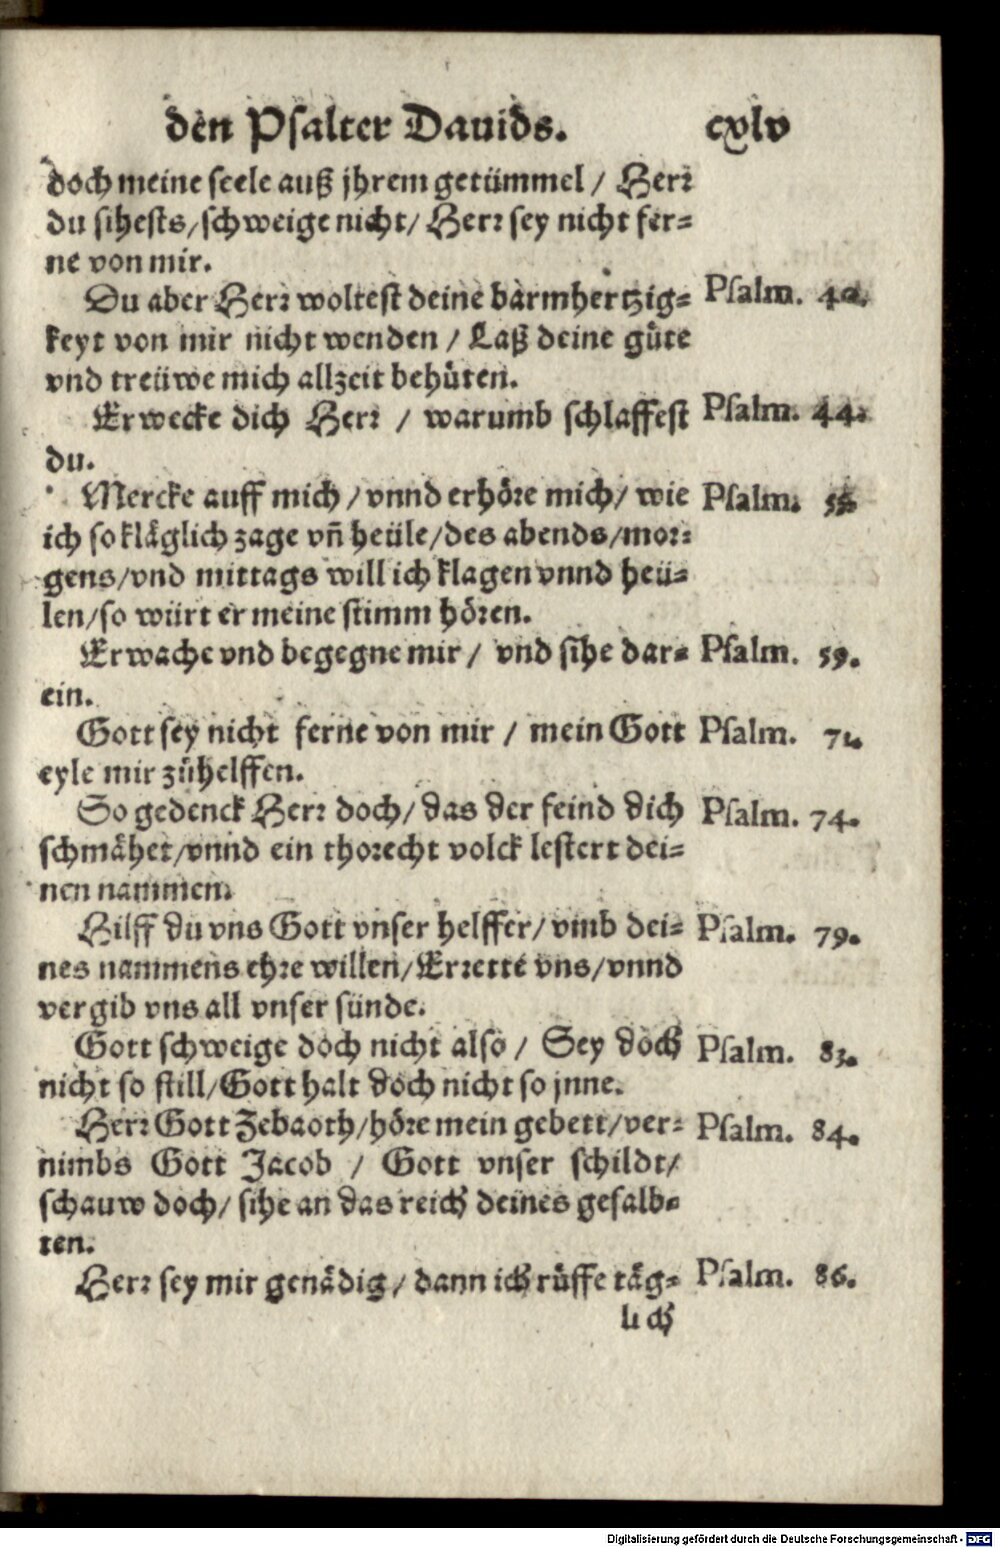 den Psalter Dauids. cxlv
doch meine seele auß jhrem getümmel / Herr
du sihests / schweige nicht / Herr sey nicht fer-
ne von mir.
Du aber Herr woltest deine barmhertzig- Psalm. 40.
keyt von mir nicht wenden / Laß deine güte
vnd treüwe mich allzeit behüten.
Erwecke dich Herr / warumb schlaffest Psalm. 44.
du.
Mercke auff mich / vnnd erhöre mich / wie Psalm. 55.
ich so kläglich zage vñ heüle / des abends / mor-
gens / vnd mittags will ich klagen vnnd heü-
len / so würt er meine stimm hören.
Erwache vnd begegne mir / vnd sihe dar- Psalm. 59.
ein.
Gott sey nicht ferne von mir / mein Gott Psalm. 71.
eyle mir zůhelffen.
So gedenck Herr doch / das der feind dich Psalm. 74.
schmähet / vnnd ein thorecht volck lestert dei-
nen nammen.
Hilff du vns Gott vnser helffer / vmb dei- Psalm. 79.
nes nammens ehre willen / Errette vns / vnnd
vergib vns all vnser sünde.
Gott schweige doch nicht also / Sey doch Psalm. 83.
nicht so still / Gott halt doch nicht so jnne.
Herr Gott Zebaoth / höre mein gebett / ver- Psalm. 84.
nimbs Gott Jacob / Gott vnser schildt /
schauw doch / sihe an das reich deines gesalb-
ten.
Herr sey mir genädig / dann ich rüffe täg- Psalm. 86.
lich
Digitalisierung gefördert durch die Deutsche Forschungsgemeinschaft - DFG